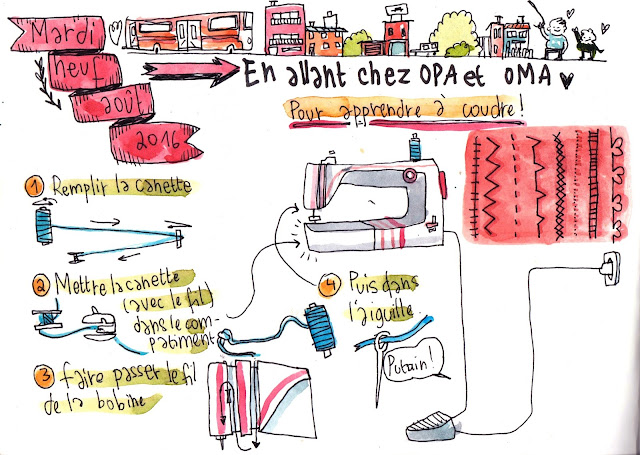 Mardi
neuf
août
2016
En allant chez OPA et OMA
Pour apprendre à coudre !
1 Remplir la canette
2 Mettre la canette
(avec le fil)
dans le com-
partiment
3 faire passer le fil
de la bobine
4 Puis dans
l'aiguille
Putain !